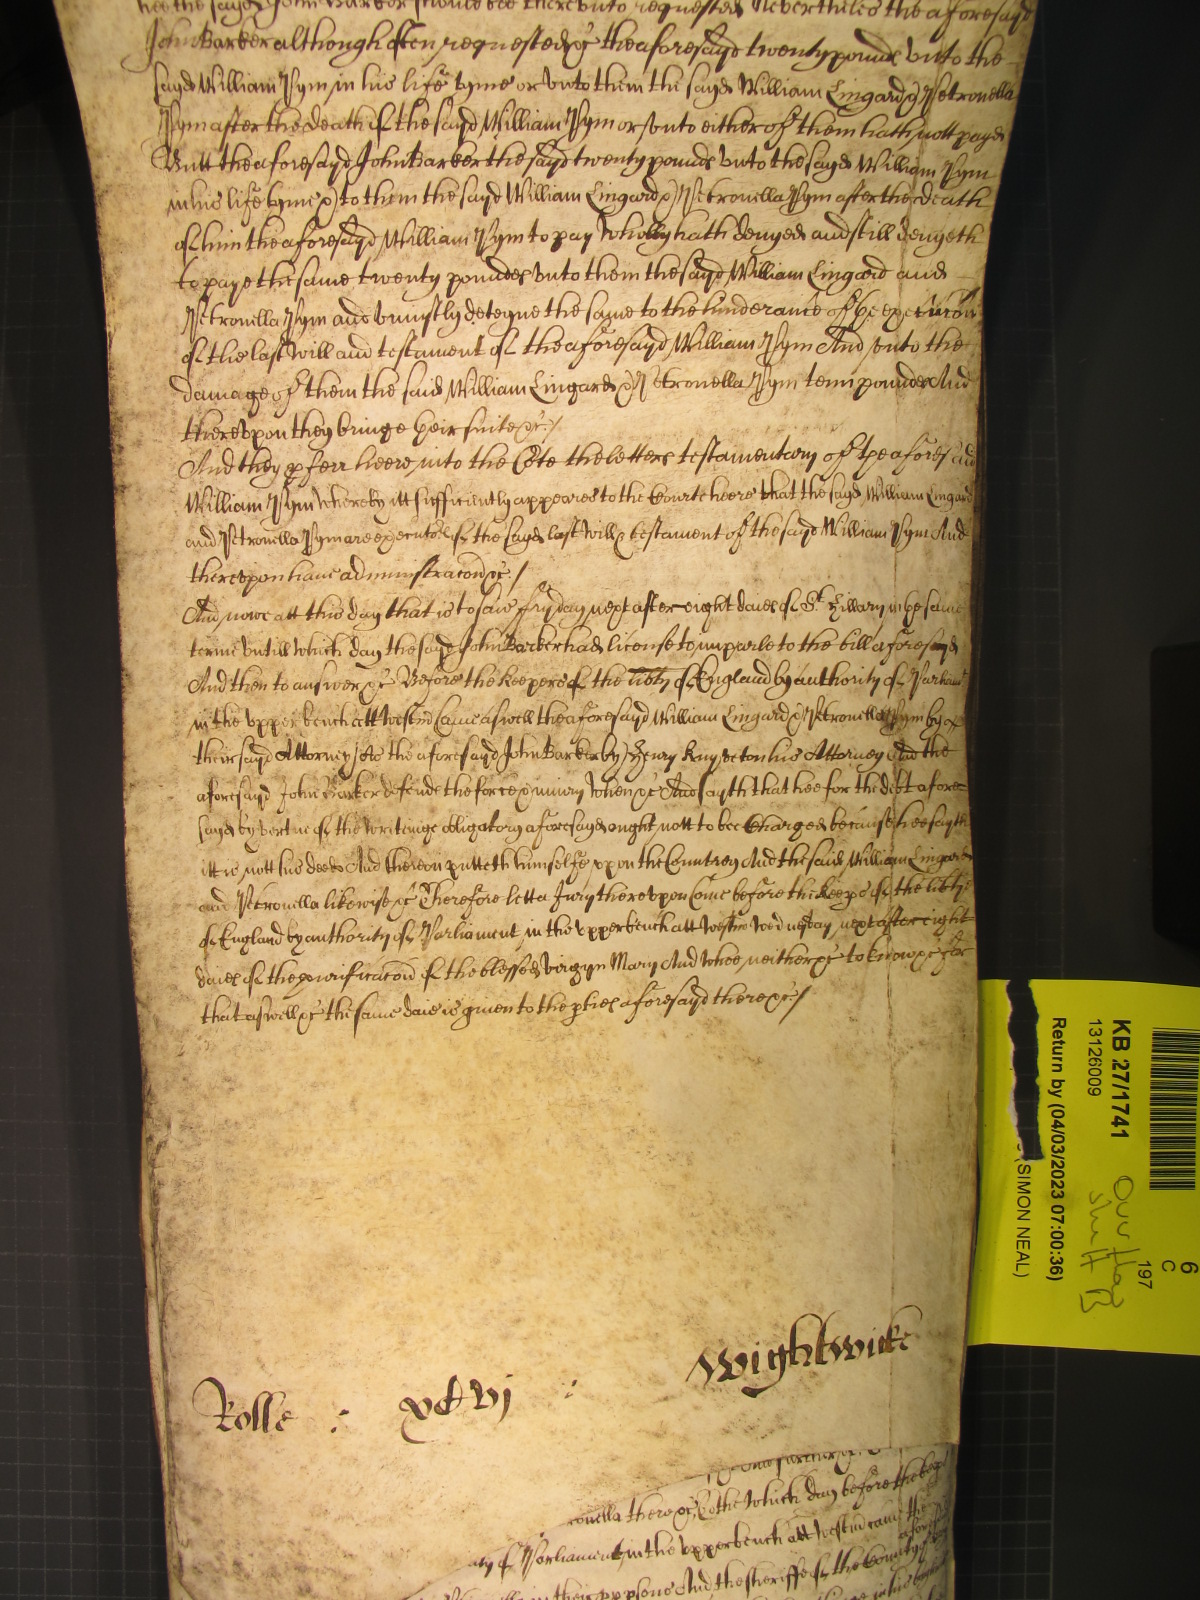 hee the sayd John Barker should bee thereunto requested Nevertheles the aforesayd
John Barker although often requested &c the aforesayd twenty pounds unto the
sayd William Pym in his life tyme or unto them the sayd William Lingard & Petronella
Pym after the death of the sayd William Pym or unto either of them hath nott payd
Butt the aforesayd John Barker the sayd twenty pounds unto the sayd William Pym
in his life tyme & to them the sayd William Lingard & Petronella Pym after the death
of him the aforesayd William Pym to pay wholly hath denyed and still denyeth
to paye the same twenty poundes unto them the sayd William Lingard and
Petronella Pym and uniustly deteyne the same to the hinderance of the execucon
of the last will and testament of the aforesayd William Pym And unto the
damage of them the said William Lingard & Petronella Pym tenn poundes And
thereupon they bringe their suite &c /
And they pferr heere into the Cote the letters testamentary of the aforesaid
William Pym whereby itt sufficiently appeares to the Courte heere that the sayd William Lingard
and Petronella Pym are executors of the sayd last will & testament of the sayd William Pym And
thereupon have administracon &c /
And nowe att this day that is to saie fryday next after eight daies of St Hillary in the same
terme untill which day the sayd John Barker had license to imparle to the bill aforesayd
And then to answer &c Before the keepers of the libty of England by authority of Parliamt
in the upper bench att Westm came aswell the aforesayd William Lingard & Petronella Pym by
their sayd Attorney As the aforesayd John Barker by Henry his Attorney And the
aforesayd John Barker defende the force & iniury when &c And sayth that hee for the debt afore
sayd by vertue of the writeinge obligatory aforesayd ought nott to bee charged because hee sayth
itt is nott his deede And thereon putteth himselfe upon the Countrey And the said William Lingard
and Petronella likewise &c Therefore lett a Jury thereupon come before the keeps of the libty
of England by authority of Parliament in the upper bench att Westm wednesday next after eight
daies of the purificacon of the blessed virgyn Mary And whoe neither &c to know &c
that aswell &c the same daie is given to the pties aforesayd there &c /
Rolle : xcvj : Wightwicke
there &c Att which day before the keeps
of Parliament in the upper bench att Westm came the
in their pper psons And the sheriffe of the County
KB 27/1741
13126009
Return by (04/03/2023 07:00:36)
(SIMON NEAL)
197
6
C